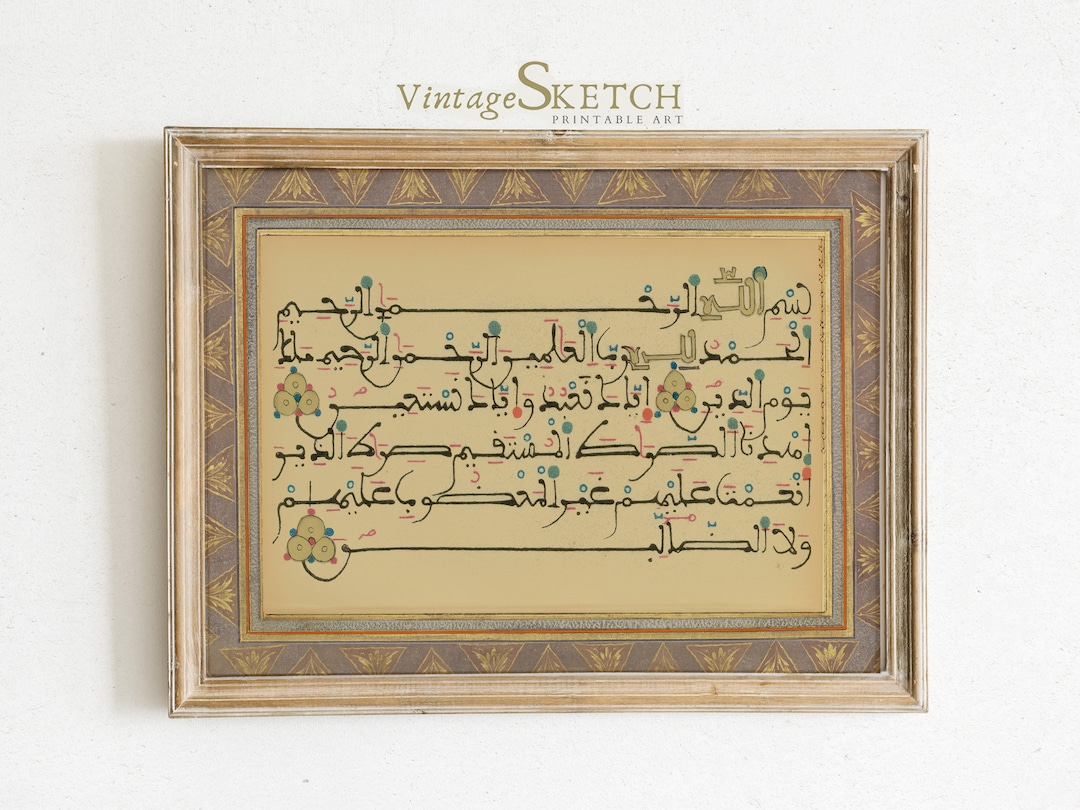 Vintage SKETCH
PRINTABLE ART
بسم الله الرحمن الرحيم
الحمد لله رب العلمين الرحمن الرحيم ملك
يوم الدين اياك نعبد واياك نستعين
اهدنا الصراط المستقيم صراط الذين
انعمت عليهم غير المغضوب عليهم
ولا الضالين